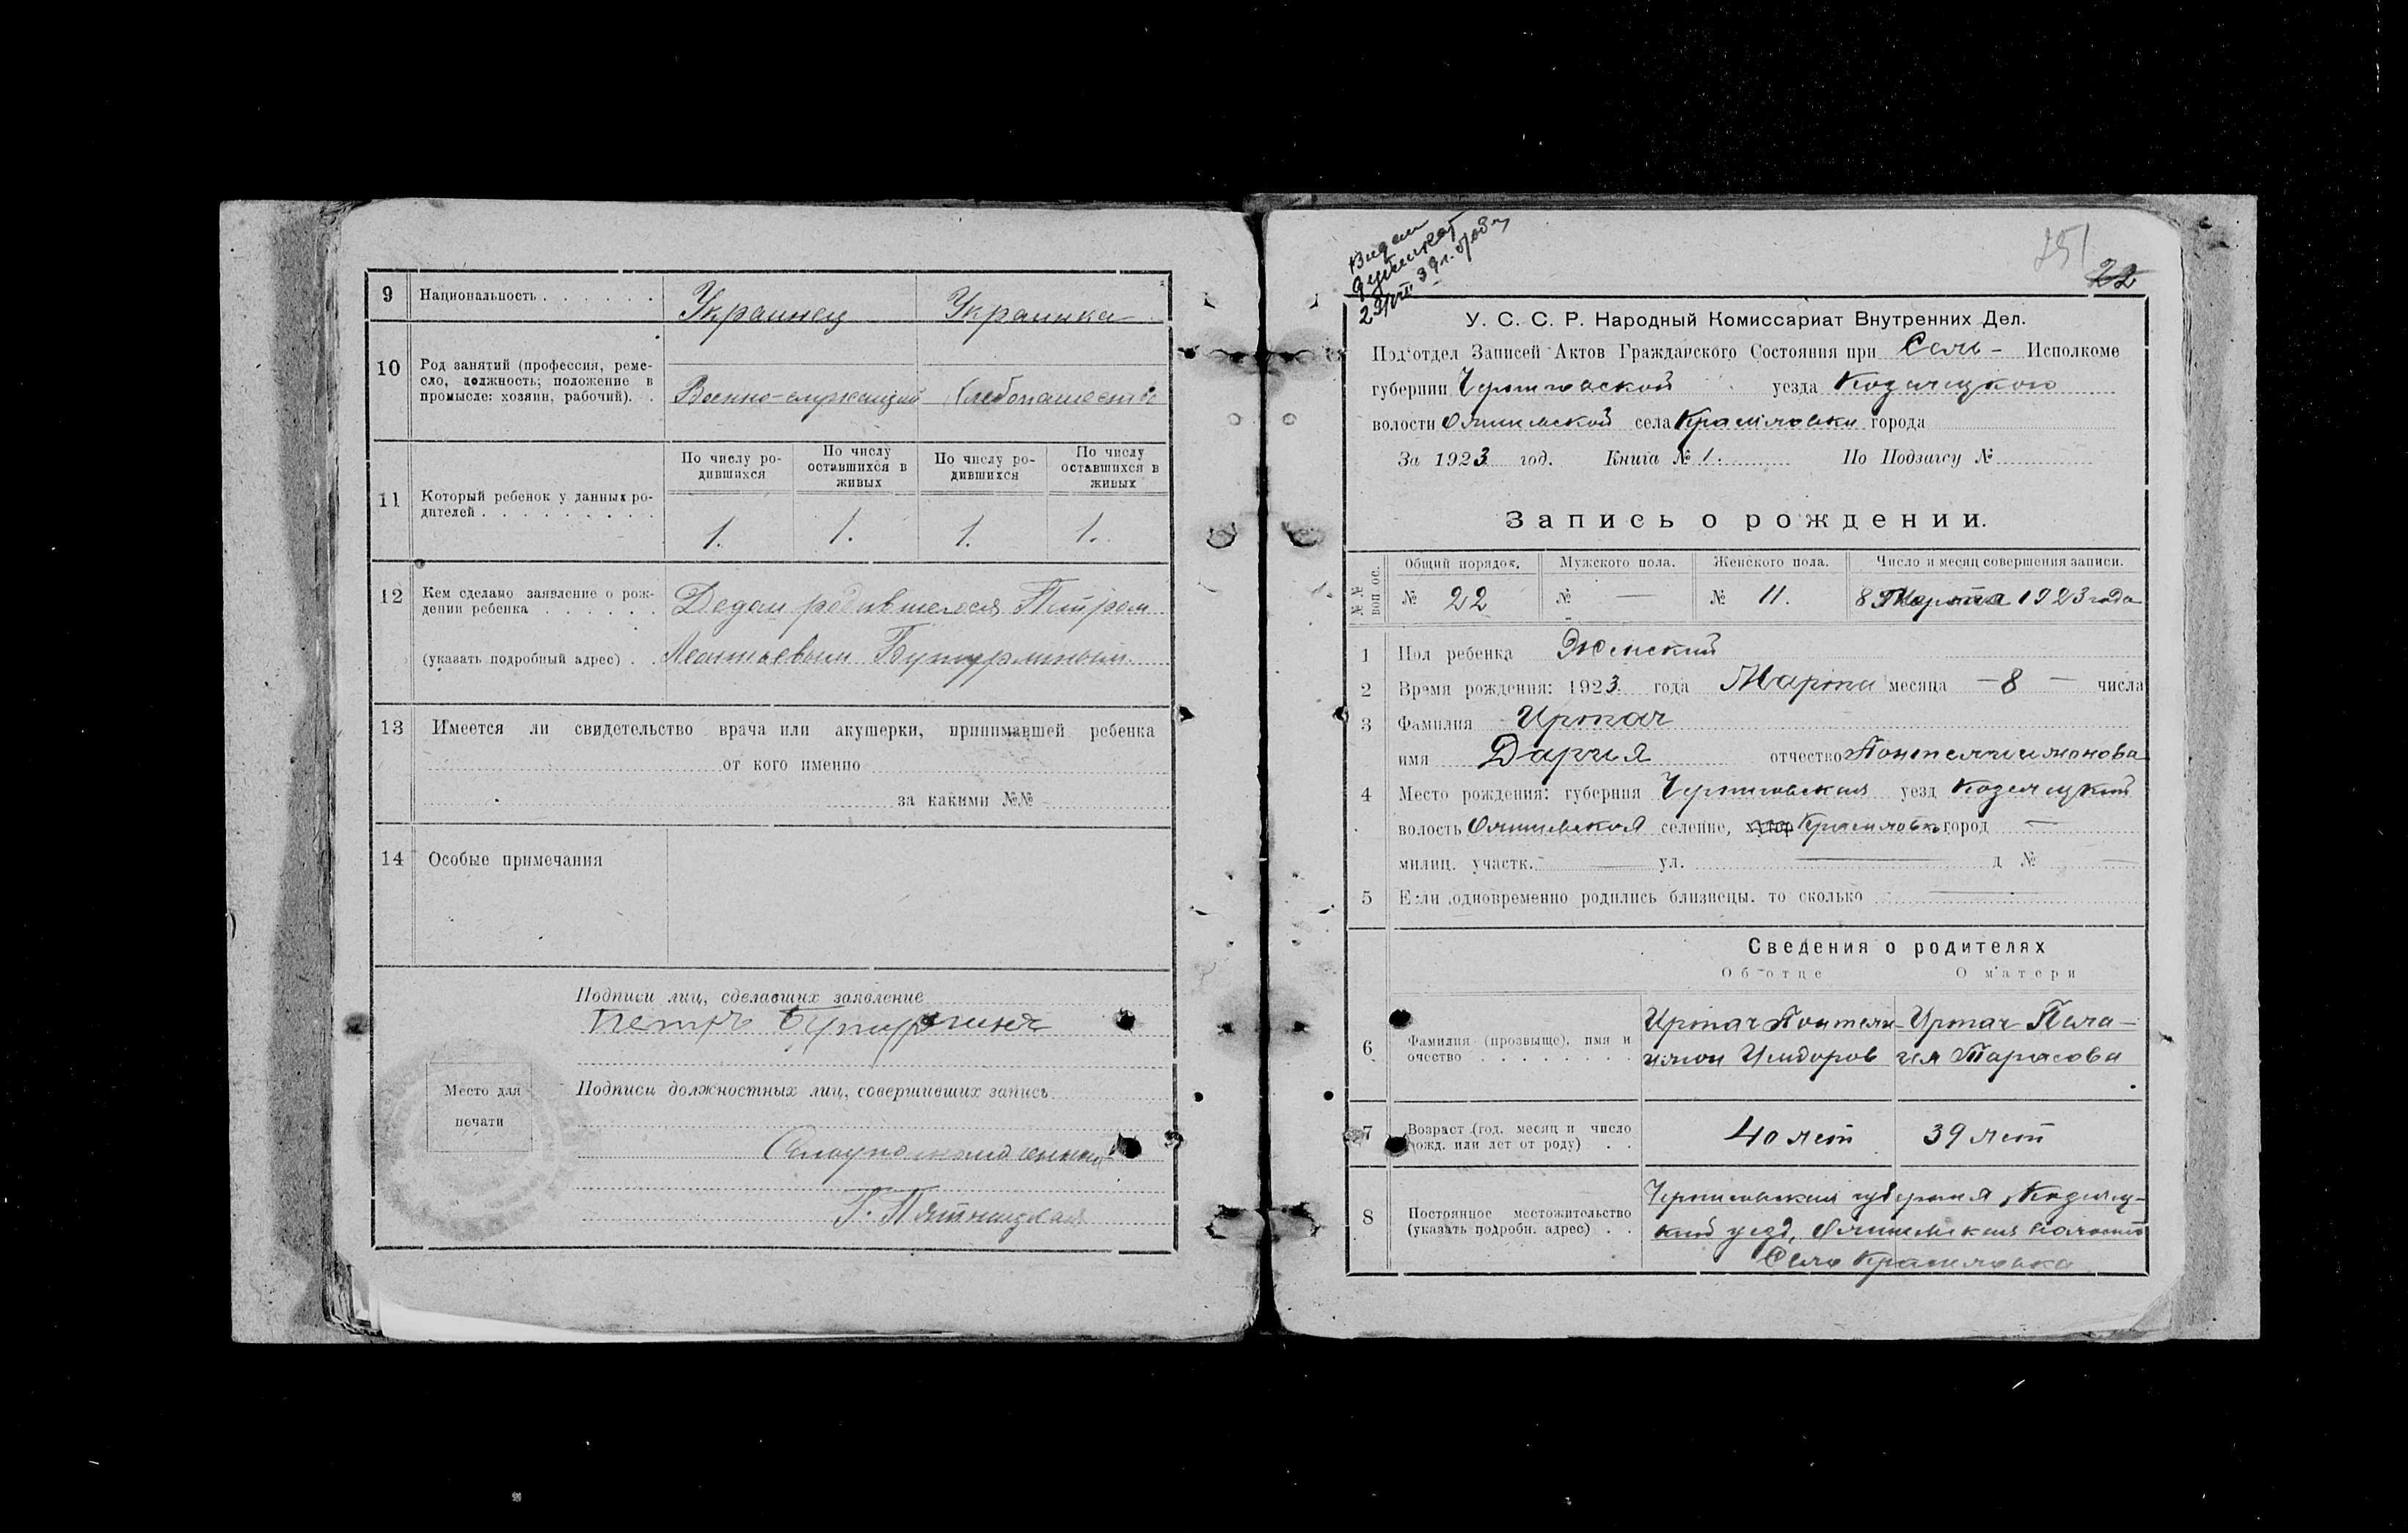 9 Национальность Украинец Украинка
10 Род занятий (профессия, реме-
сло, должность; положение в
промысле: хозяин, рабочий). Военно-служащий Хлебопашество
По числу ро-
дившихся По числу
оставшихся в
живых По числу ро-
дившихся По числу
оставшихся в
живых
11 Который ребенок у данных ро-
дителей 1. 1. 1. 1.
12 Кем сделано заявление о рож-
дении ребенка Дедом родившегося Петром
(указать подробный адрес) Леонтьевым Бутурлиным
13 Имеется ли свидетельство врача или акушерки, принимавшей ребенка
от кого именно
за какими №№
14 Особые примечания
Подписи лиц, сделавших заявление
Петръ Бутурлинъ
Место для
печати
Подписи должностных лиц, совершивших запись
Г. Пятницкая
Видан
дубликат
23/VIII 39 г.
251
22
У. С. С. Р. Народный Комиссариат Внутренних Дел.
Подотдел Записей Актов Гражданского Состояния при Сель- Исполкоме
губернии Черниговской уезда Козелецкого
волости Олишевской села Красиловки города
За 1923 год. Книга № 1. По Подзагсу №
Запись о рождении.
№№ воп ос. Общий порядок. Мужского пола. Женского пола. Число и месяц совершения записи.
№ 22 № — № 11. 8 Марта 1923 года
1 Пол ребенка Женский
2 Время рождения: 1923 года Марта месяца — 8 — числа
3 Фамилия Иртач
имя Дария отчество Понтелимонова
4 Место рождения: губерния Черниговская уезд Козелецкий
волость Олишевская селение, хутор Красиловка город —
милиц. участк. — ул. — д № —
5 Если одновременно родились близнецы. то сколько —
Сведения о родителях
Об отце О матери
6 Фамилия (прозвыще), имя и
очество Иртач Понтели- Иртач Пела-
имон Исидоров гия Тарасова
7 Возраст (год, месяц и число
рожд. или лет от роду) 40 лет 39 лет
8 Постоянное местожительство
(указать подробн. адрес) Черниговская губерния, Козелец-
кий уезд, Олишевская волость
Село Красиловка